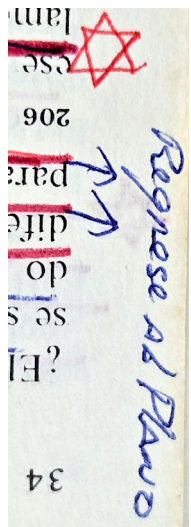 34
¿El
se s
do
dife
para
206
ese
lam
Regrese AL PLANO